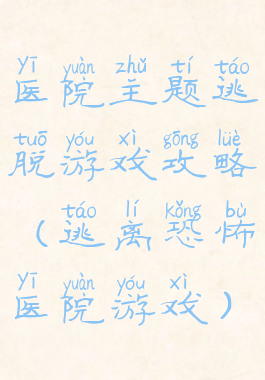 yī yuàn zhǔ tí táo
医院主题逃
tuō yóu xì gōng lüè
脱游戏攻略
táo lí kǒng bù
（逃离恐怖
yī yuàn yóu xì
医院游戏）